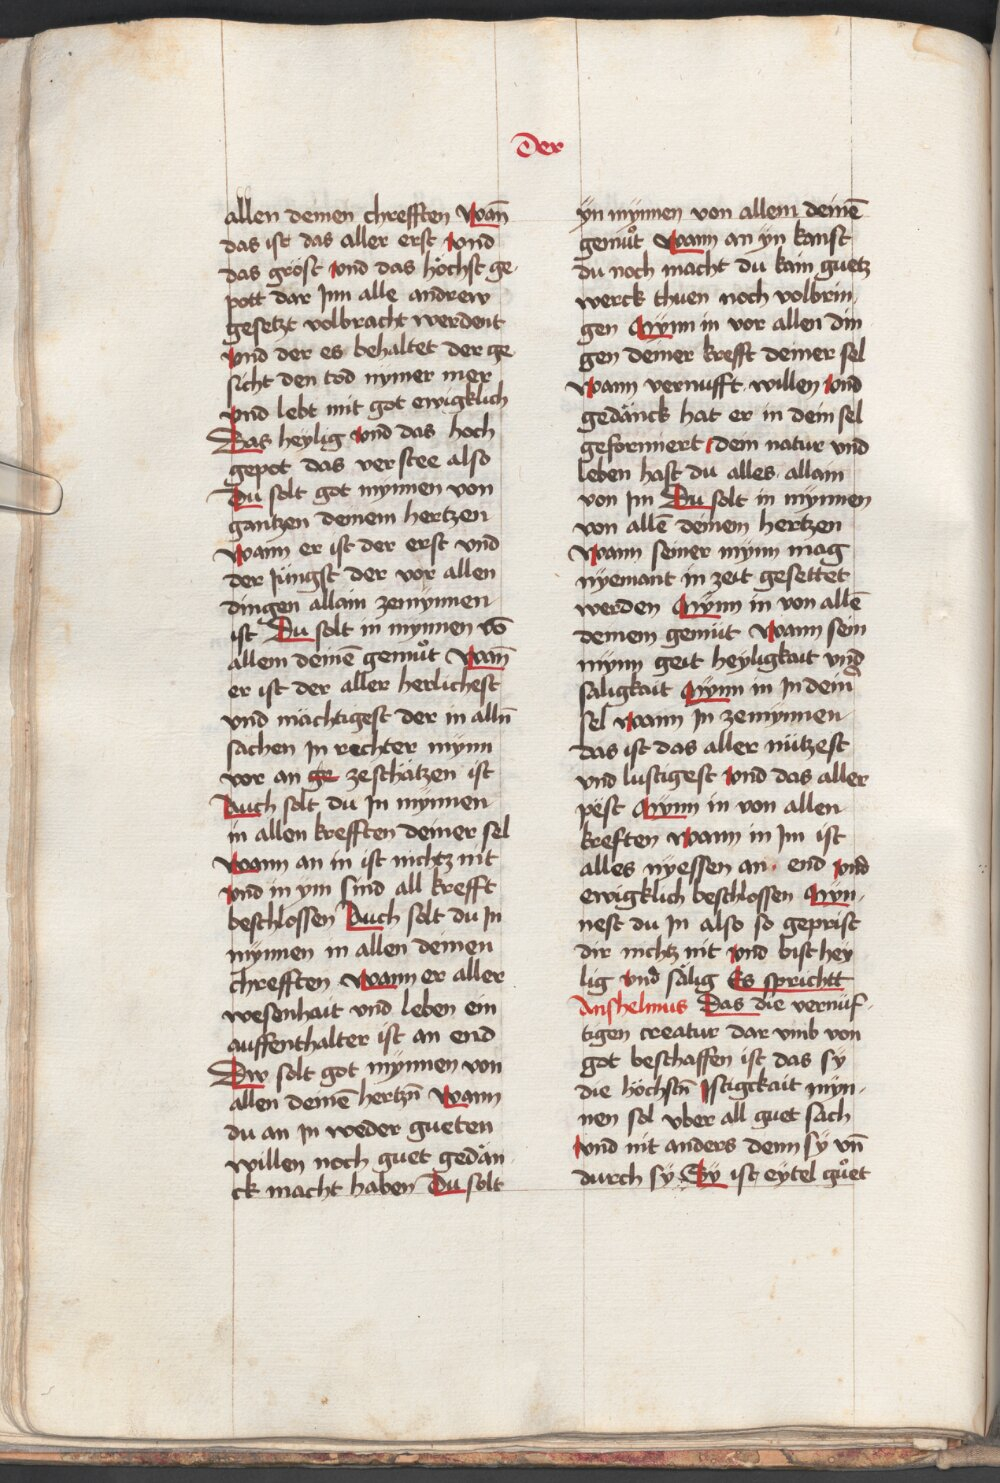 Der
allen deinen chrefften Wañ
das ist das aller erst Vnd
das gröst Vnd das höchst ge
pott dar Jnn alle andrew
gesetzt volbracht werdent
Vnd der es behaltet der ge
sicht den tod nymer mer
Vnd lebt mit got ewigklich
Das heylig Vnd das hoch
gepot das verstee also
Du solt got mynnen von
gantzen deinem hertzen
Wann er ist der erst vnd
der Jüngst der vor allen
dingen allain zemynnen
ist Du solt in mynnen vō
allem deinē gemuͦt Wañ
er ist der aller herlichest
vnd mächtigest der in alln̄
sachen Jn rechter mynn
vor an ge zeschätzen ist
Auch solt du Jn mynnen
in allen krefften deiner sel
Wann an in ist nichtz nit
Vnd in ym sind all krefft
beschlossen Auch solt du Jn
mynnen in allen deinen
chrefften Wann er aller
wesenhait vnd leben ein
auffenthalter ist an end
Dw solt got mynnen von
allen deinē hertzn̄ Wann
du an Jn weder gueten
willen noch guet gedän
ck macht haben Du solt
yn mynnen von allem deinē
gemuͦt Wann an yn kanst
du noch macht du kain guetz
werck thuen noch volbrin
gen Mynn in vor allen din
gen deiner krefft deiner sel
Wann vernufft willen Vnd
gedänck hat er in dein sel
geformiert dein natur vnd
leben hast du alles allain
von Jm Du solt in mynnen
von allē deinem hertzen
Wann seiner mynn mag
nyemant in zeit gesettet
werden Mynn in von allē
deinem gemüt Wann sein
mynn geit heyligkait vnd
saligkait Mynn in Jn deinͬ
sel Wann Jn zemynnen
das ist das aller nützest
vnd lustigest Vnd das aller
pest Mynn in von allen
kreften Wann in Jm ist
alles nyessen an end Vnd
ewigklich beschlossen Myn
nest du Jn also so geprist
dir nichtz nit Vnd bist hey
lig Vnd sälig Es sprichtt
Anshelmus Das die vernüf
tigen creatur dar vmb von
got beschaffen ist das sy
die höchstn̄ Istigckait myn
nen sol vber all guet sach
Vnd nit anders denn sy vn̄
durch sy Sy ist eytel guͦet